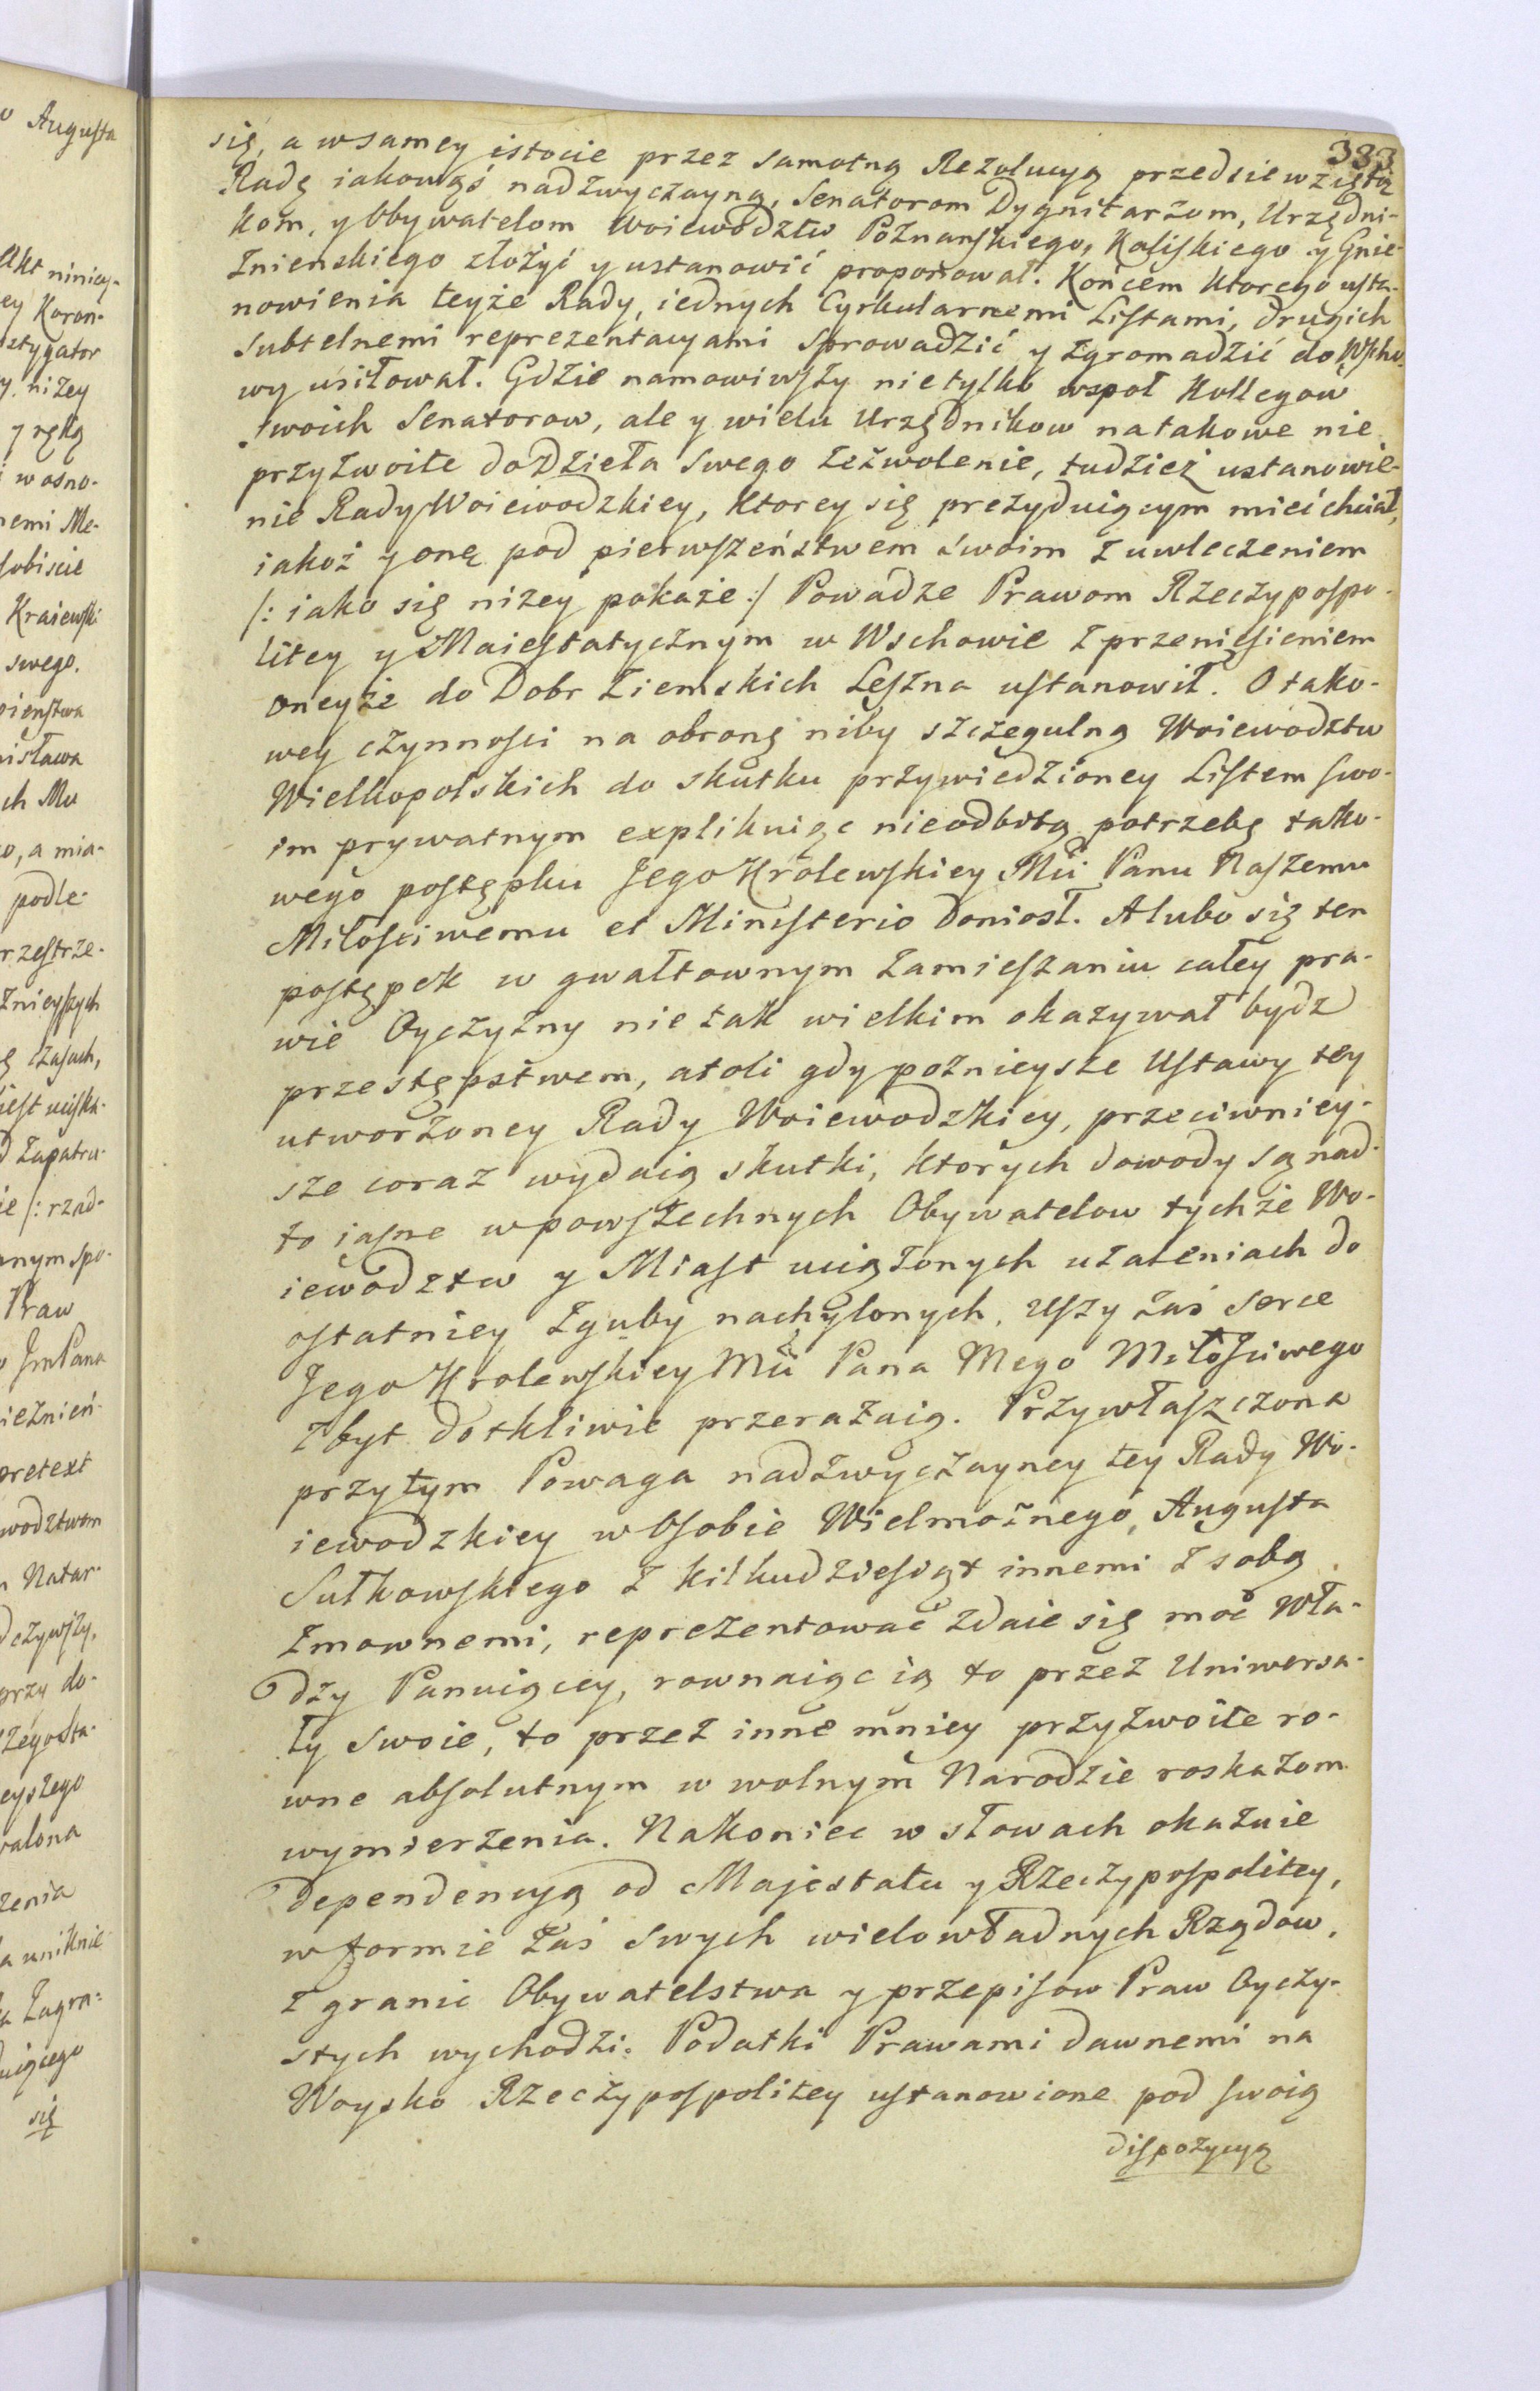 333
się, a wsamey istocie przez samotną Rezolucyą przedsiewziętą
Radę iakowąś nadzwyczayną, Senatorom Dygnitarzom, Urzędni-
kom, y Obywatelom Woiewodztw Poznanskiego, Kaliskiego y Gnie-
znienskiego złożyć y ustanowić proponował. Końcem ktorego usta-
nowienia teyże Rady, iednych Cyrkularnemi Listami, drugich
subtelnemi reprezentacyami sprowadzić y zgromadzić do Wscho-
wy usiłował. Gdzie namowiwszy nietylko wspoł Kollegow
swoich Senatorow, ale y wielu Urzędnikow natakowe nie
przyzwoite do Dzieła swego zezwolenie, tudzież ustanowie-
nie Rady Woiewodzkiey, ktorey się prezyduiącym mieć chciał,
iakoż y onę pod pierwszeństwem swoim z uwleczeniem
/: iako się niżey pokaże :/ Powadze Prawom Rzeczypospo-
litey y Maiestatycznym w Wschowie z przeniesieniem
oneyże do Dobr Ziemskich Leszna ustanowił. O tako-
wey czynnosci na obronę niby szczegulną Woiewodztw
Wielkopolskich do skutku przywiedzioney Listem swo-
im prywatnym explikuiąc nieodbitą potrzebę tako-
wego postępku Jego Krolewskiey Mci Panu Naszemu
Miłosciwemu et Ministerio doniosł. A lubo się ten
postępek w gwałtownym zamieszaniu całey pra-
wie Oyczyzny nie tak wielkim okazywał bydz
przestępstwem, atoli gdy poznieysze Ustawy tey
utworzoney Rady Woiewodzkiey, przeciwniey-
sze coraz wydaią skutki, ktorych dowody są nad-
to iasne w powszechnych Obywatelow tychże Wo-
iewodztw y Miast uciążonych użaleniach do
ostatniey zguby nachylonych, Uszy zaś Serce
Jego Krolewskiey Mci Pana Mego Miłosciwego
zbyt dotkliwie przerażaią. Przywłaszczona
przytym Powaga nadzwyczayney tey Rady Wo-
iewodzkiey w Osobie Wielmożnego Augusta
Sułkowskiego z kilkudziesiąt innemi z sobą
zmownemi, reprezentować zdaie się moc Wła-
dzy Panuiącey, rownaiąc ią to przez Uniwersa-
ły swoie, to przez inne mniey przyzwoite ro-
wne absolutnym w wolnym Narodzie roskazom
wymierzenia. Nakoniec w słowach okazuie
dependencyą od Majestatu y Rzeczypospolitey,
w formie zaś swych wielowładnych Rządow,
z granic Obywatelstwa y przepisow Praw Oyczy-
stych wychodzi. Podatki Prawami dawnemi na
Woysko Rzeczypospolitey ustanowione pod swoią
dispozycyą